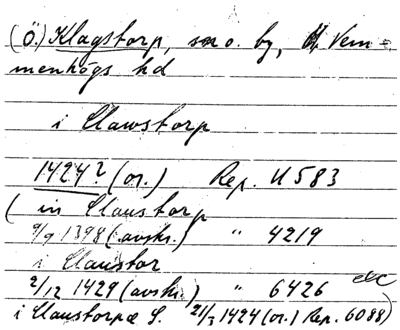 (Ö.) Klagstorp, sn o. by, Vem-
menhögs hd
i Clawstorp
1424? (or.) Rep. U 583
( in Claustorp
9/9 1398 (avskr.) " 4219
i Claustor
2/12 1429 (avskr.) " 6426 etc
i Claustorpæ S. 21/3 1424 (or.) Rep. 6088)